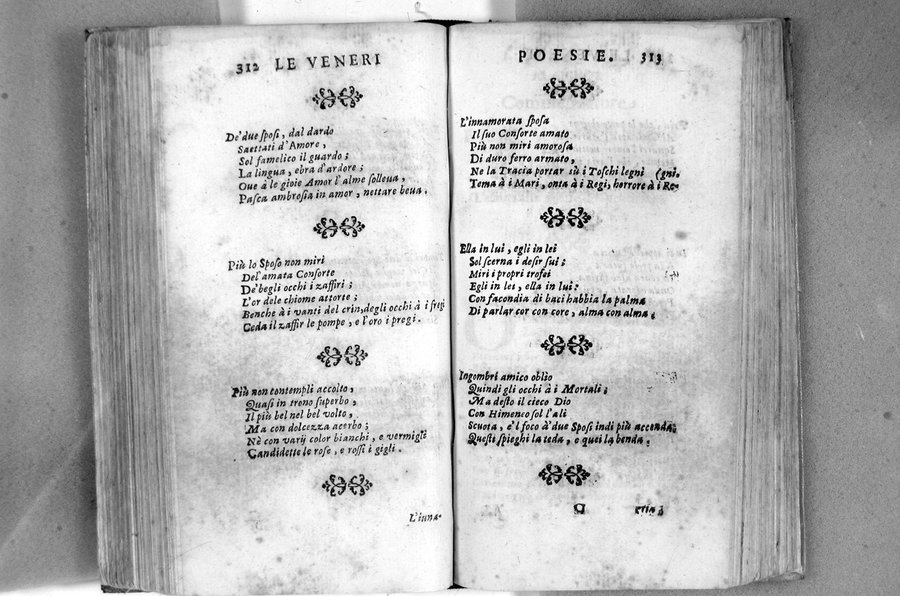 312 LE VENERI
De' due sposi, dal dardo
Saettati d'Amore,
Sol famelico il guardo;
La lingua, ebra d'ardore;
Oue à le gioie Amor l'alme solleua,
Pasca ambrosia in amor, nettare beua.
Più lo Sposo non miri
Del' amata Consorte
De' begli occhi i zaffiri;
L'or dele chiome attorte;
Benche à i vanti del crin, degli occhi à i fregi
Ceda il zaffir le pompe, e l'oro i pregi.
Più non contempli accolto,
Quasi in trono superbo,
Il più bel nel bel volto,
Ma con dolcezza acerbo;
Nè con varij color bianchi, e vermigli
Candidette le rose, e rossi i gigli.
L'inna-
POESIE. 313
L'innamorata sposa
Il suo Consorte amato
Più non miri amorosa
Di duro ferro armato,
Ne la Tracia portar sù i Toschi legni (gni.
Tema à i Mari, onta à i Regi, horrore à i Re-
Ella in lui, egli in lei
Sol scerna i desir sui;
Miri i propri trofei
Egli in lei, ella in lui:
Con facondia di baci habbia la palma
Di parlar cor con core, alma con alma.
Ingombri amico oblio
Quindi gli occhi à i Mortali;
Ma desto il cieco Dio
Con Himeneo sol l'ali
Scuota, e'l foco à' due Sposi indi più accenda;
Questi spieghi la teda, e quei la benda.